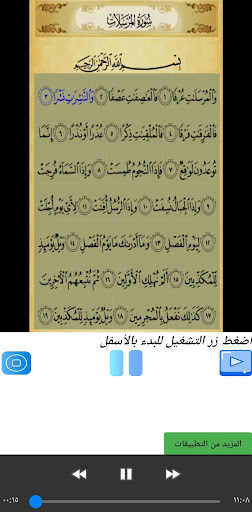 سُورَةُ المُرْسَلَات
بِسْمِ اللَّهِ الرَّحْمَٰنِ الرَّحِيمِ
وَٱلْمُرْسَلَٰتِ عُرْفًا ١ فَٱلْعَٰصِفَٰتِ عَصْفًا ٢ وَٱلنَّٰشِرَٰتِ نَشْرًا ٣
فَٱلْفَٰرِقَٰتِ فَرْقًا ٤ فَٱلْمُلْقِيَٰتِ ذِكْرًا ٥ عُذْرًا أَوْ نُذْرًا ٦ إِنَّمَا
تُوعَدُونَ لَوَٰقِعٌ ٧ فَإِذَا ٱلنُّجُومُ طُمِسَتْ ٨ وَإِذَا ٱلسَّمَآءُ فُرِجَتْ
٩ وَإِذَا ٱلْجِبَالُ نُسِفَتْ ١٠ وَإِذَا ٱلرُّسُلُ أُقِّتَتْ ١١ لِأَىِّ يَوْمٍ أُجِّلَتْ
١٢ لِيَوْمِ ٱلْفَصْلِ ١٣ وَمَآ أَدْرَىٰكَ مَا يَوْمُ ٱلْفَصْلِ ١٤ وَيْلٌ يَوْمَئِذٍ
لِّلْمُكَذِّبِينَ ١٥ أَلَمْ نُهْلِكِ ٱلْأَوَّلِينَ ١٦ ثُمَّ نُتْبِعُهُمُ ٱلْءَاخِرِينَ
١٧ كَذَٰلِكَ نَفْعَلُ بِٱلْمُجْرِمِينَ ١٨ وَيْلٌ يَوْمَئِذٍ لِّلْمُكَذِّبِينَ ١٩
اضغط زر التشغيل للبدء بالأسفل
المزيد من التطبيقات
٠٠:١٥ ١١:٠٨